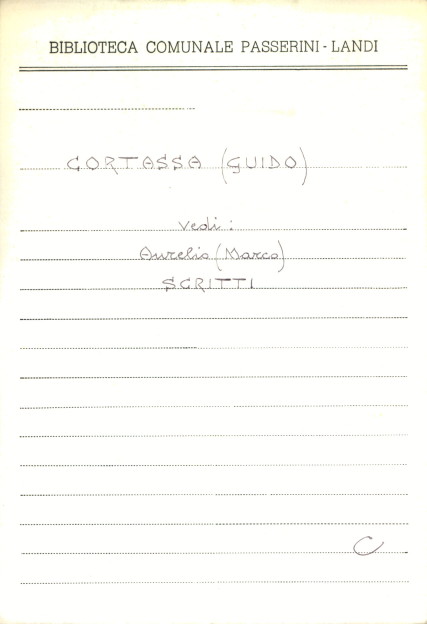 BIBLIOTECA COMUNALE PASSERINI - LANDI
CORTASSA (GUIDO)
Vedi:
Aurelio (Marco)
SCRITTI
C